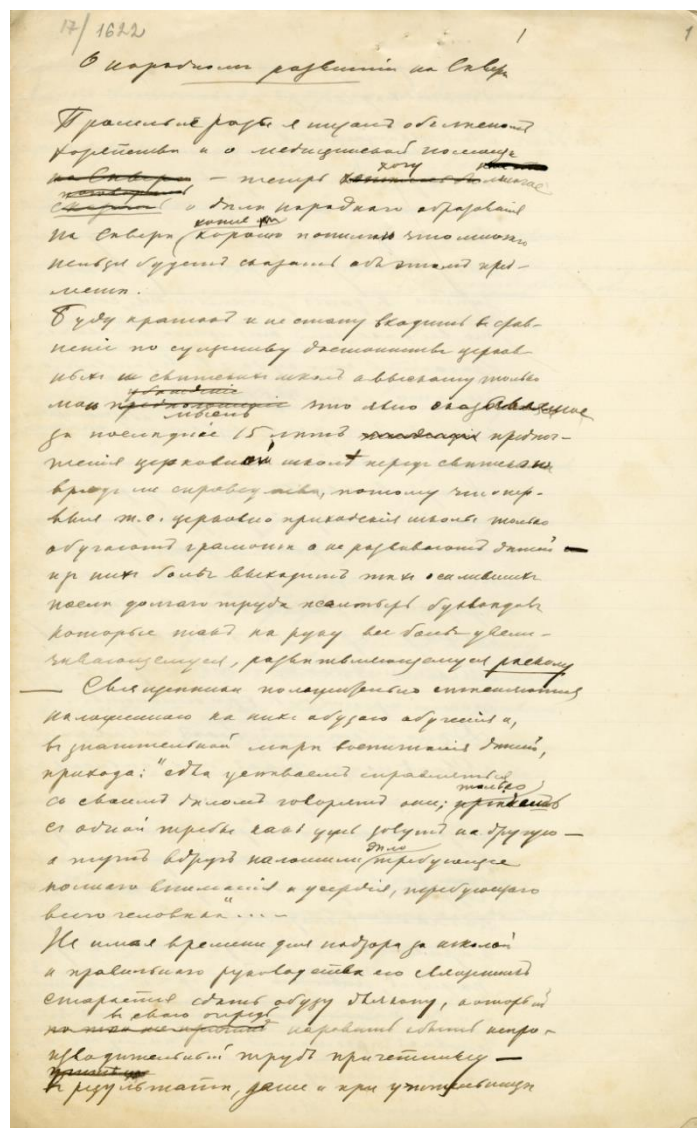 17/1622
1
1
О народномъ развитіи на Сѣверѣ
Прошлые разы я писалъ объ
хозяйствѣ и о медицинской помощи
на Сѣверѣ — теперь хочу
о дѣлѣ народнаго образованія
на Сѣверѣ хотя хорошо понимаю что много
нельзя будетъ сказать объ этомъ пред-
метѣ.
Буду кратокъ и не стану входить въ срав-
неніе по существу достоинствъ церков-
ныхъ и свѣтскихъ школъ а выскажу только
мою мысль что явно
за послѣдніе 15 лѣтъ предпоч-
тенія церковной школѣ передъ свѣтскою
врядъ ли справедливо, потому что пер-
выя т.е. церковно приходскія школы только
обучаютъ грамотѣ а не развиваютъ дѣтей —
изъ нихъ болѣе выходитъ такъ осиливших
послѣ долгаго труда псалтырь буквоѣдовъ
которые такъ на руку все болѣе увели-
чивающемуся, развѣтвляющемуся расколу
— Священники положительно стѣсняются
наложеннаго на нихъ обузою обученія и,
въ значительной мѣрѣ воспитанія дѣтей,
прихода: "едва успѣваемъ справляться
со своимъ дѣломъ говорятъ они; только
съ одной требы какъ ужъ зовутъ на другую —
а тутъ вдругъ наложили дѣло требующее
полнаго вниманія и усердія, требующаго
всего человѣка"....
Не имѣя времени для надзора за школой
и правильнаго руководства ею священникъ
старается сдать обузу дьякону, который
въ свою очередь норовитъ сбыть непро-
изводительный трудъ причетнику —
въ результатѣ, даже и при учительницѣ